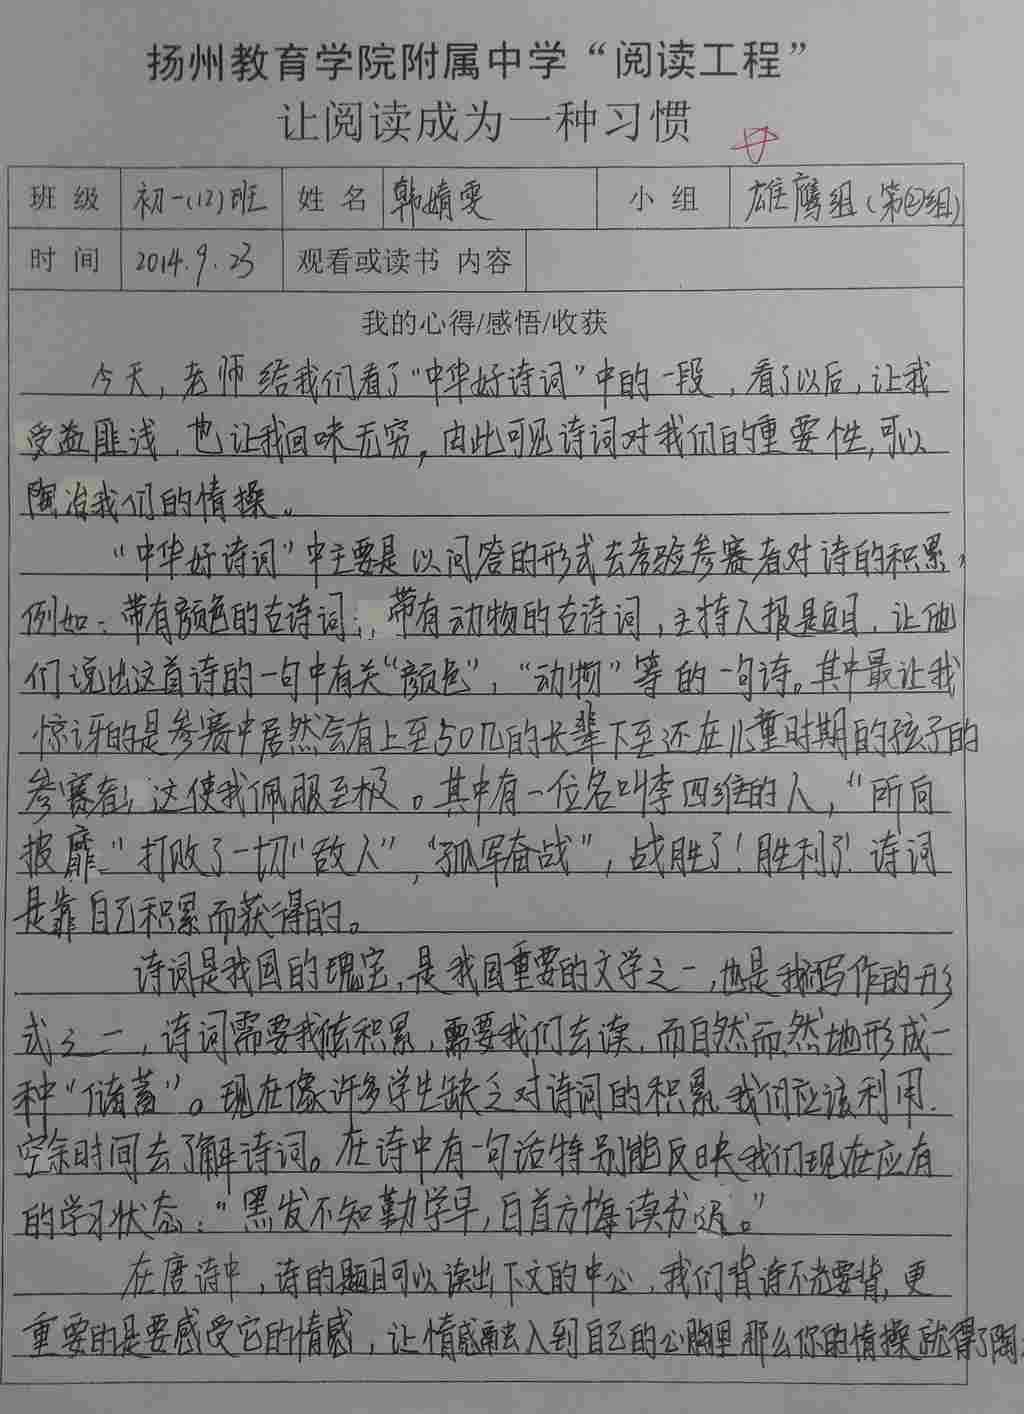 扬州教育学院附属中学“阅读工程”
让阅读成为一种习惯
班 级 初一(12)班 姓 名 韩婧雯 小 组 雄鹰组(第②组)
时 间 2014.9.23 观看或读书 内容
我的心得/感悟/收获
今天，老师给我们看了“中华好诗词”中的一段，看了以后，让我
受益匪浅，也让我回味无穷，由此可见诗词对我们的重要性，可以
陶冶我们的情操。
“中华好诗词”中主要是以问答的形式去考验参赛者对诗的积累，
例如：带有颜色的古诗词；带有动物的古诗词，主持人报题目，让他
们说出这首诗的一句中有关“颜色”，“动物”等的一句诗。其中最让我
惊讶的是参赛中居然会有上至50几的长辈下至还在儿童时期的孩子的
参赛者，这使我佩服至极。其中有一位名叫李四维的人，“所向
披靡”打败了一切“敌人”，“孤军奋战”，战胜了！胜利了！诗词
是靠自己积累而获得的。
诗词是我国的瑰宝，是我国重要的文学之一，也是我们写作的形
式之一，诗词需要我们去积累，需要我们去读，而自然而然地形成一
种“储蓄”。现在像许多学生缺乏对诗词的积累，我们应该利用
空余时间去了解诗词。在诗中有一句话特别能反映我们现在应有
的学习状态：“黑发不知勤学早，白首方悔读书迟。”
在唐诗中，诗的题目可以读出下文的中心，我们背诗不光要背，更
重要的是要感受它的情感，让情感融入到自己的心胸里那么你的情操就得了陶